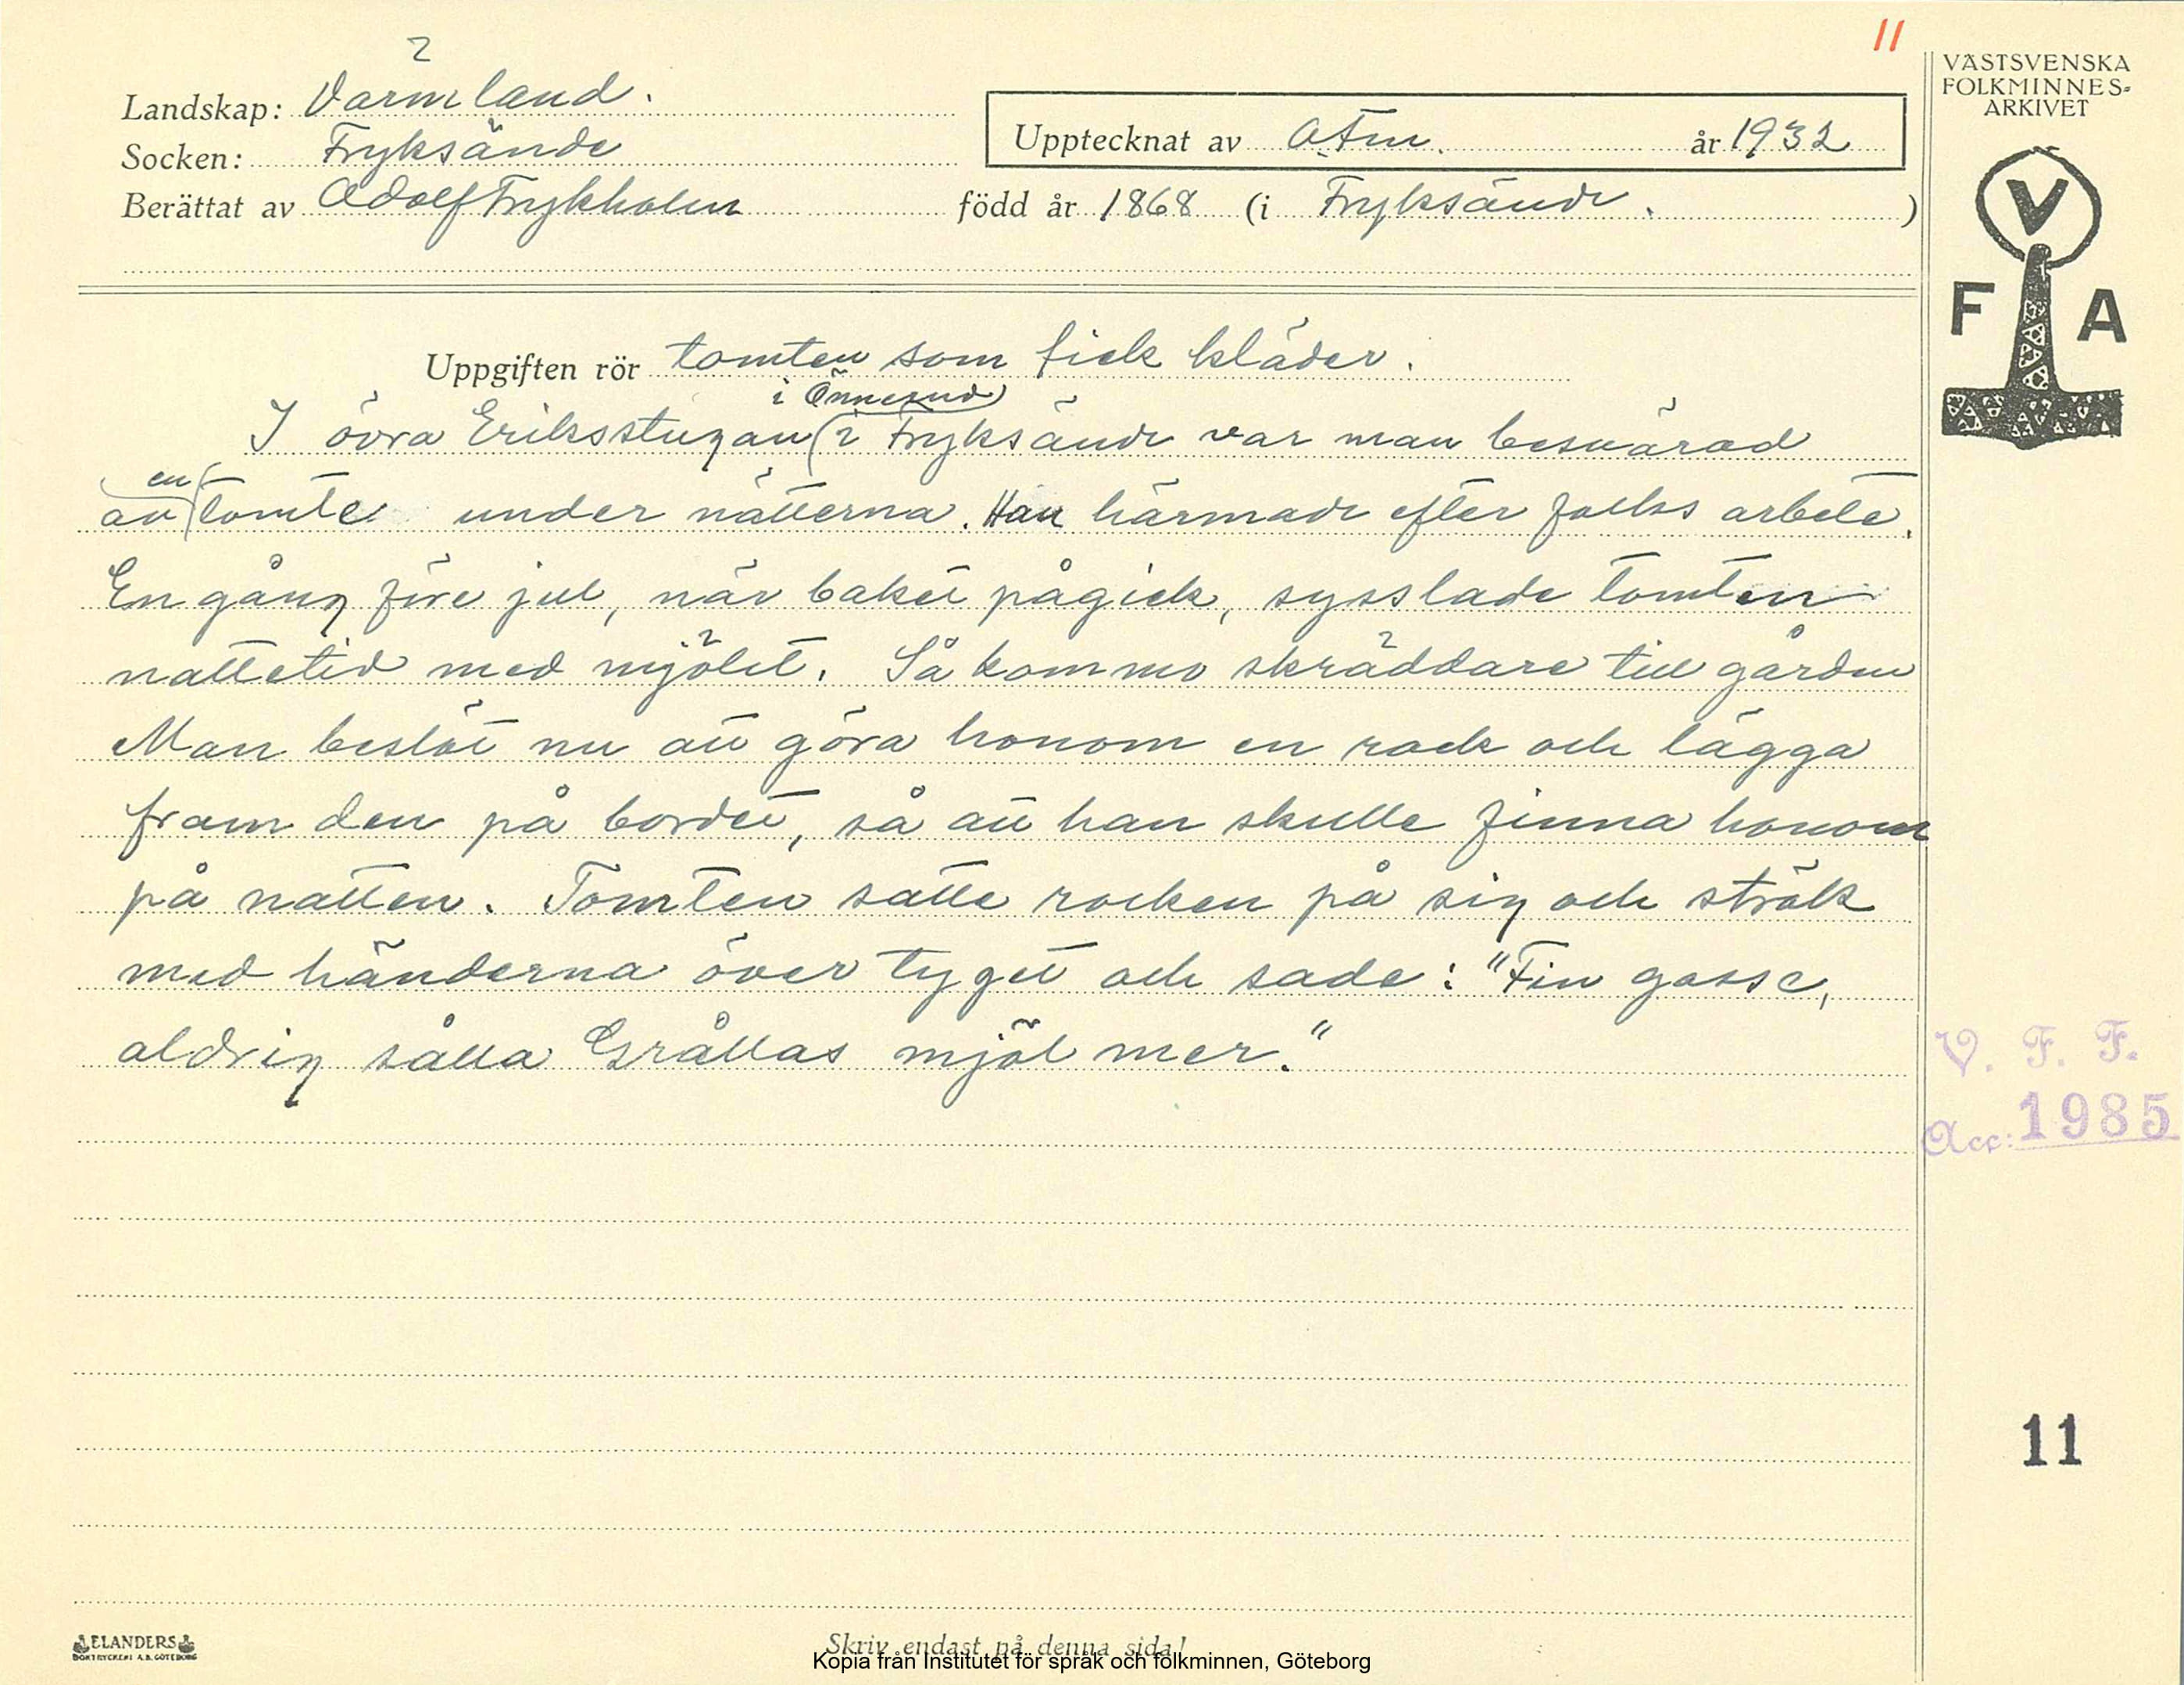 11
VÄSTSVENSKA
FOLKMINNES-
ARKIVET
V
F A
Landskap: Värmland.
Socken: Fryksände
Upptecknat av år 1932
Berättat av Adolf Frykholm född år 1868 (i Fryksände. )
Uppgiften rör tomten som fick kläder.
i Önnerud
I övra Eriksstugan (i Fryksände var man besvärad
en
av tomte under nätterna. Han härmade efter folks arbete.
En gång före jul, när baket pågick, sysslade tomten
nattetid med mjölet. Så kommo skräddare till gården
Man beslöt nu att göra honom en rock och lägga
fram den på bordet, så att han skulle finna honom
på natten. Tomten satte rocken på sig och strök
med händerna över tyget och sade: "Fin gosse,
aldrig sålla Grållas mjöl mer."
V. F. F.
Acc: 1985
11
ELANDERS
BOKTRYCKERI A.B. GÖTEBORG
Skriv endast på denna sida!
Kopia från Institutet för språk och folkminnen, Göteborg